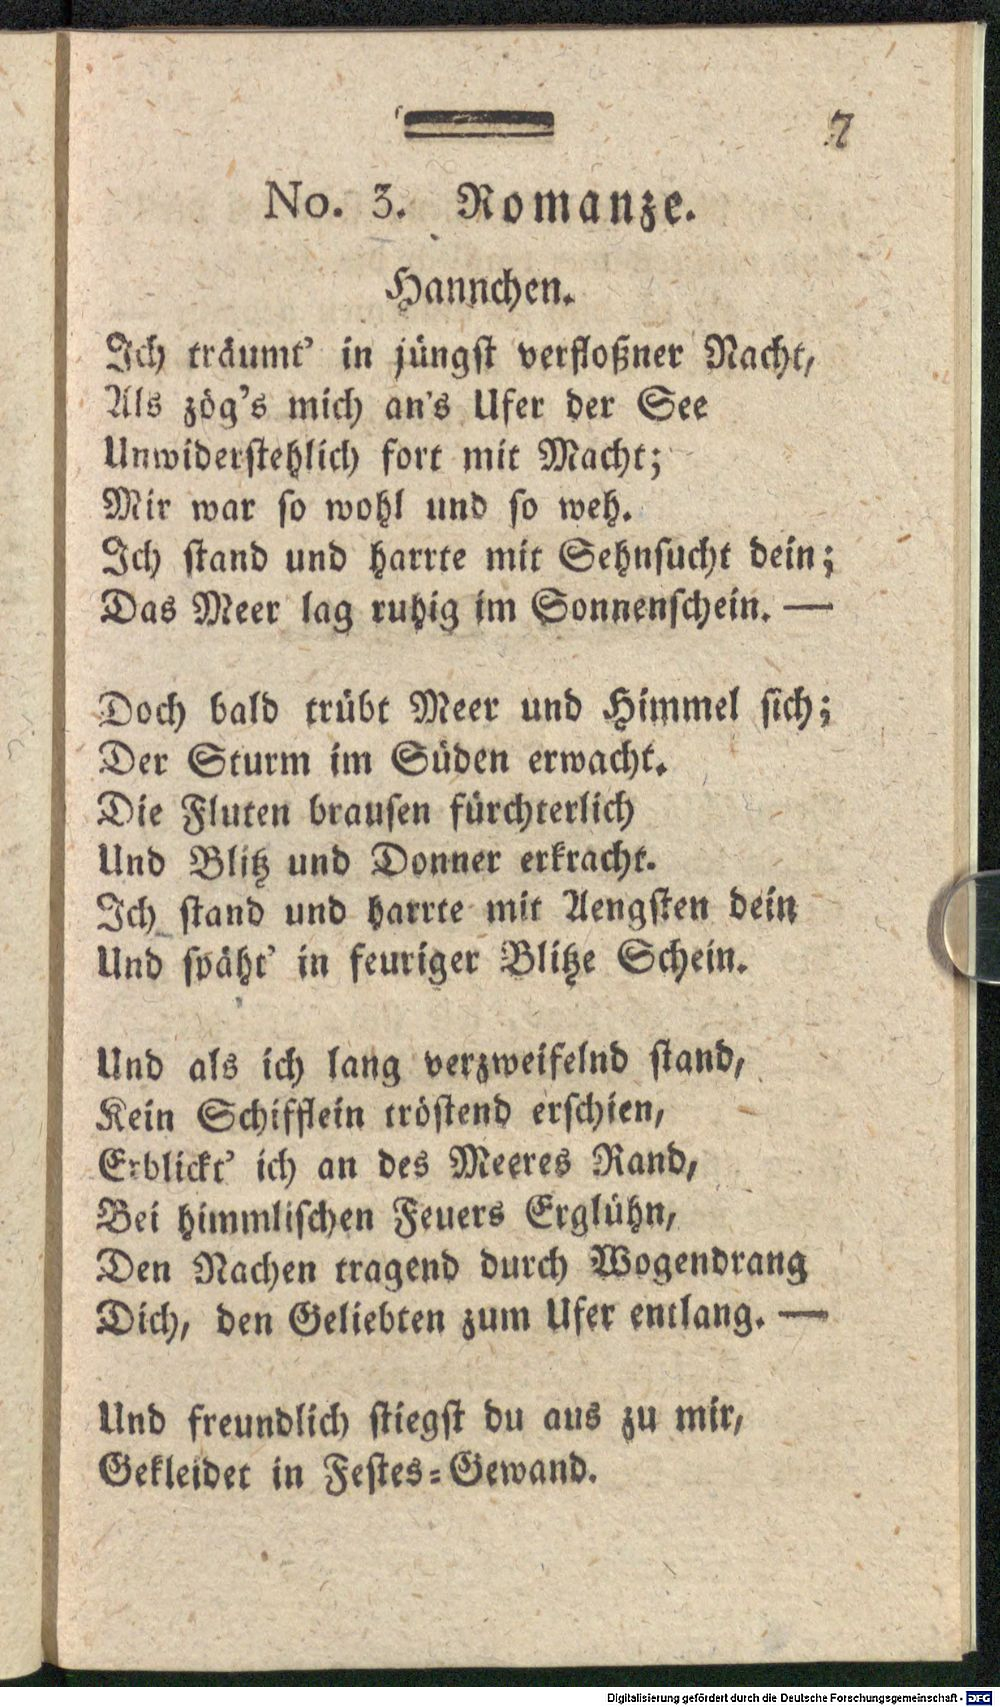 7
No. 3. Romanze.
Hannchen.
Ich träumt' in jüngst verfloßner Nacht,
Als zög's mich an's Ufer der See
Unwiderstehlich fort mit Macht;
Mir war so wohl und so weh.
Ich stand und harrte mit Sehnsucht dein;
Das Meer lag ruhig im Sonnenschein. —
Doch bald trübt Meer und Himmel sich;
Der Sturm im Süden erwacht.
Die Fluten brausen fürchterlich
Und Blitz und Donner erkracht.
Ich stand und harrte mit Aengsten dein
Und späht' in feuriger Blitze Schein.
Und als ich lang verzweifelnd stand,
Kein Schifflein tröstend erschien,
Erblickt' ich an des Meeres Rand,
Bei himmlischen Feuers Erglühn,
Den Nachen tragend durch Wogendrang
Dich, den Geliebten zum Ufer entlang. —
Und freundlich stiegst du aus zu mir,
Gekleidet in Festes-Gewand.
Digitalisierung gefördert durch die Deutsche Forschungsgemeinschaft - DFG